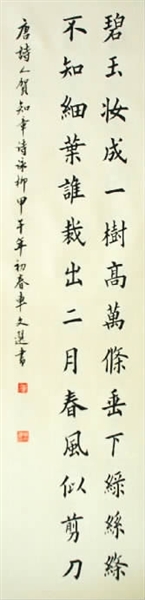 碧玉妝成一樹高萬條垂下綠絲絛
不知細葉誰裁出二月春風似剪刀
唐詩人賀知章詩詠柳甲午年初春車文選書